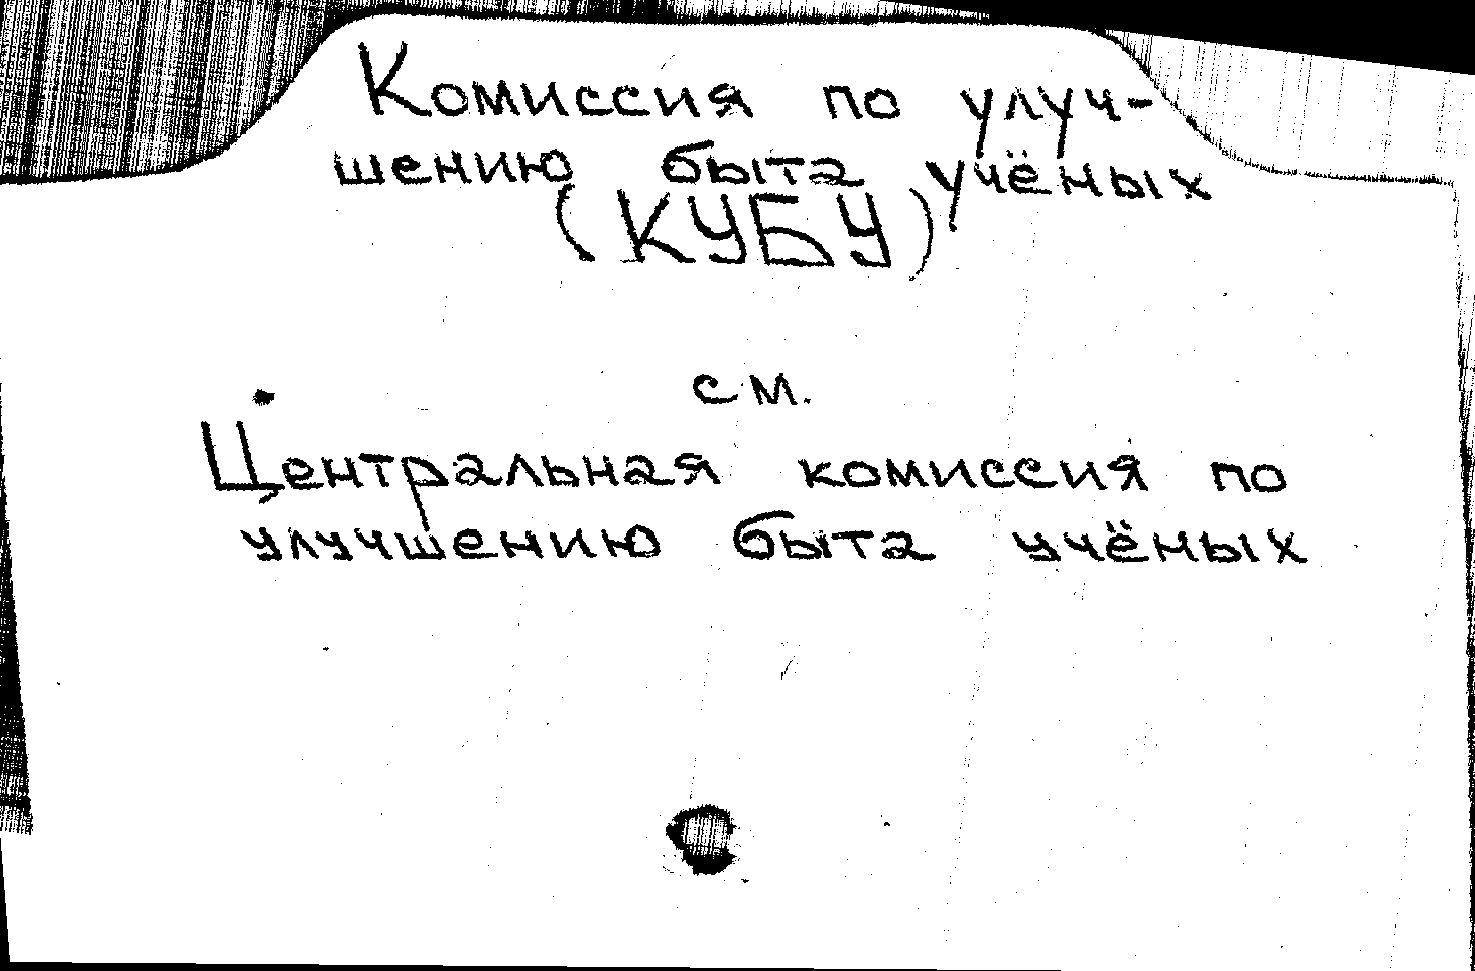 Комиссия по улуч-
шению быта учёных
(КУБУ)
см.
Центральная комиссия по
улучшению быта учёных